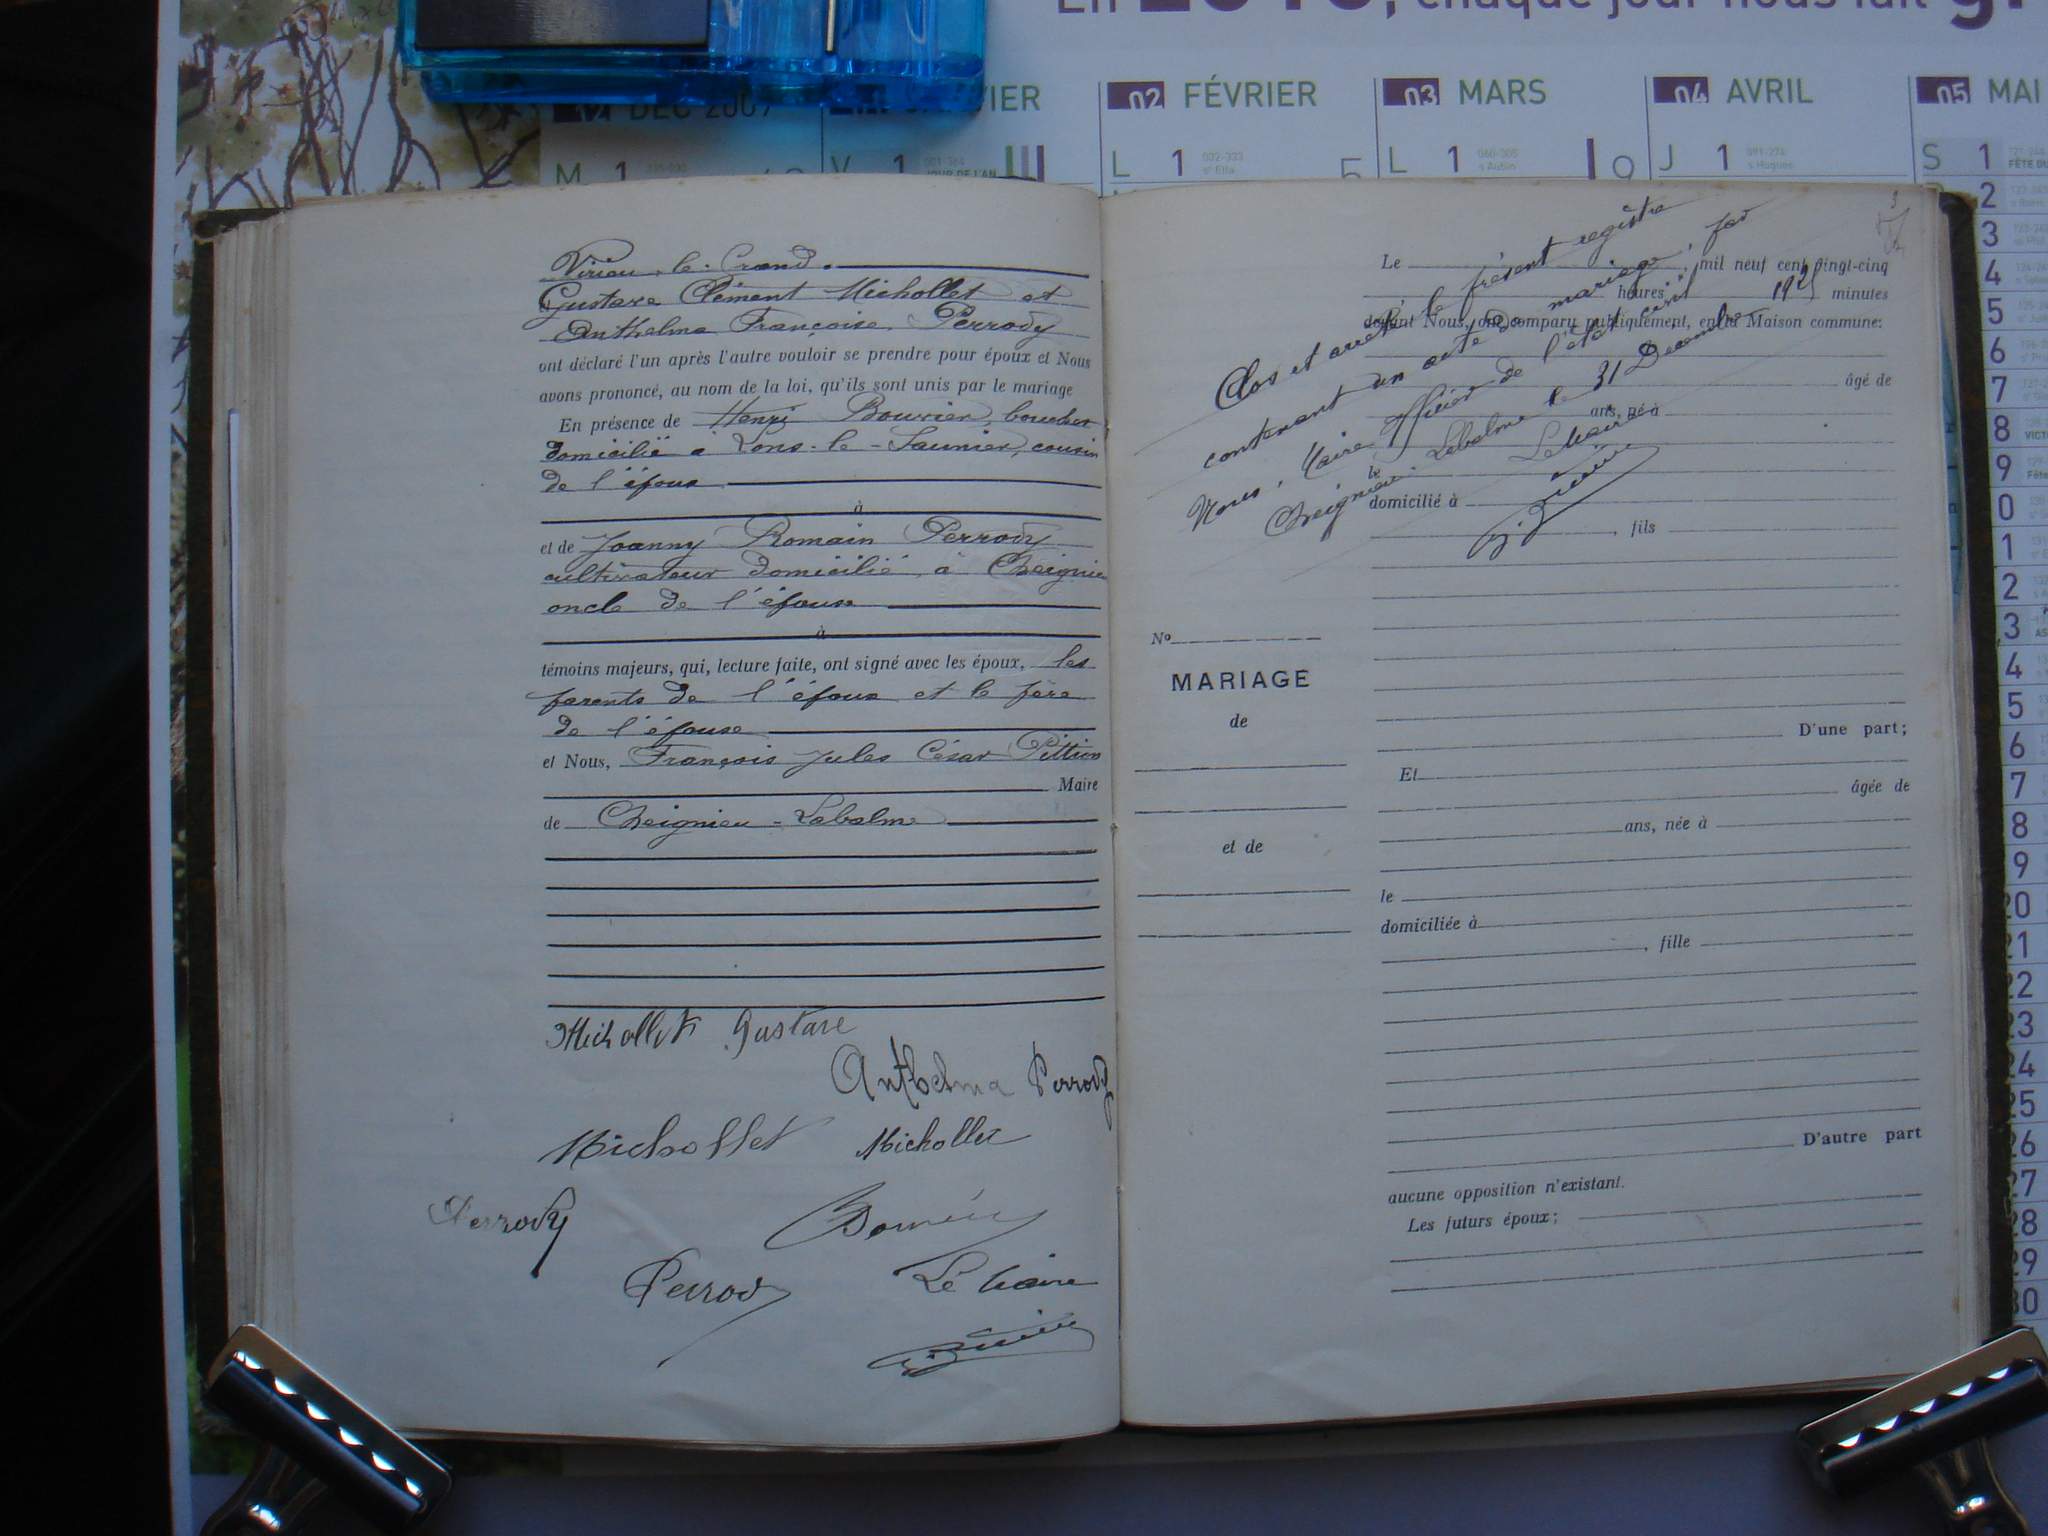 En 2010, chaque jour nous fait
DEC 2009
VIER
02 FÉVRIER
03 MARS
04 AVRIL
05 MAI
M 1
V 1 JOUR DE L'AN
L 1
L 1
J 1
S 1
Virieu-le-Grand.
Gustave Clément Michollet et
Anthelma Françoise Perrody
ont déclaré l'un après l'autre vouloir se prendre pour époux et Nous
avons prononcé, au nom de la loi, qu'ils sont unis par le mariage
En présence de Henri Bouvier, boucher
domicilié à Lons-le-Saunier, cousin
de l'époux
à
et de Joanny Romain Perrody
cultivateur domicilié à Cheignieu
oncle de l'épouse
à
témoins majeurs, qui, lecture faite, ont signé avec les époux, les
parents de l'époux et le père
de l'épouse
et Nous, François Jules César Pittion
Maire
de Cheignieu-Labalme
Michollet Gustave
Anthelma Perrody
Michollet Michollet
Perrody Bouvier
Perrody Le Maire
Clos et arrêté le présent registre
contenant un acte de mariage, par
Nous, Maire Officier de l'état civil
Cheignieu Labalme le 31 Décembre 1925
Le Maire
Le , mil neuf cent vingt-cinq
heures minutes
devant Nous, ont comparu publiquement, en la Maison commune:
âgé de
ans, né à
le
domicilié à
, fils
No
MARIAGE
de
et de
D'une part;
Et
âgée de
ans, née à
le
domiciliée à
, fille
D'autre part
aucune opposition n'existant.
Les futurs époux;